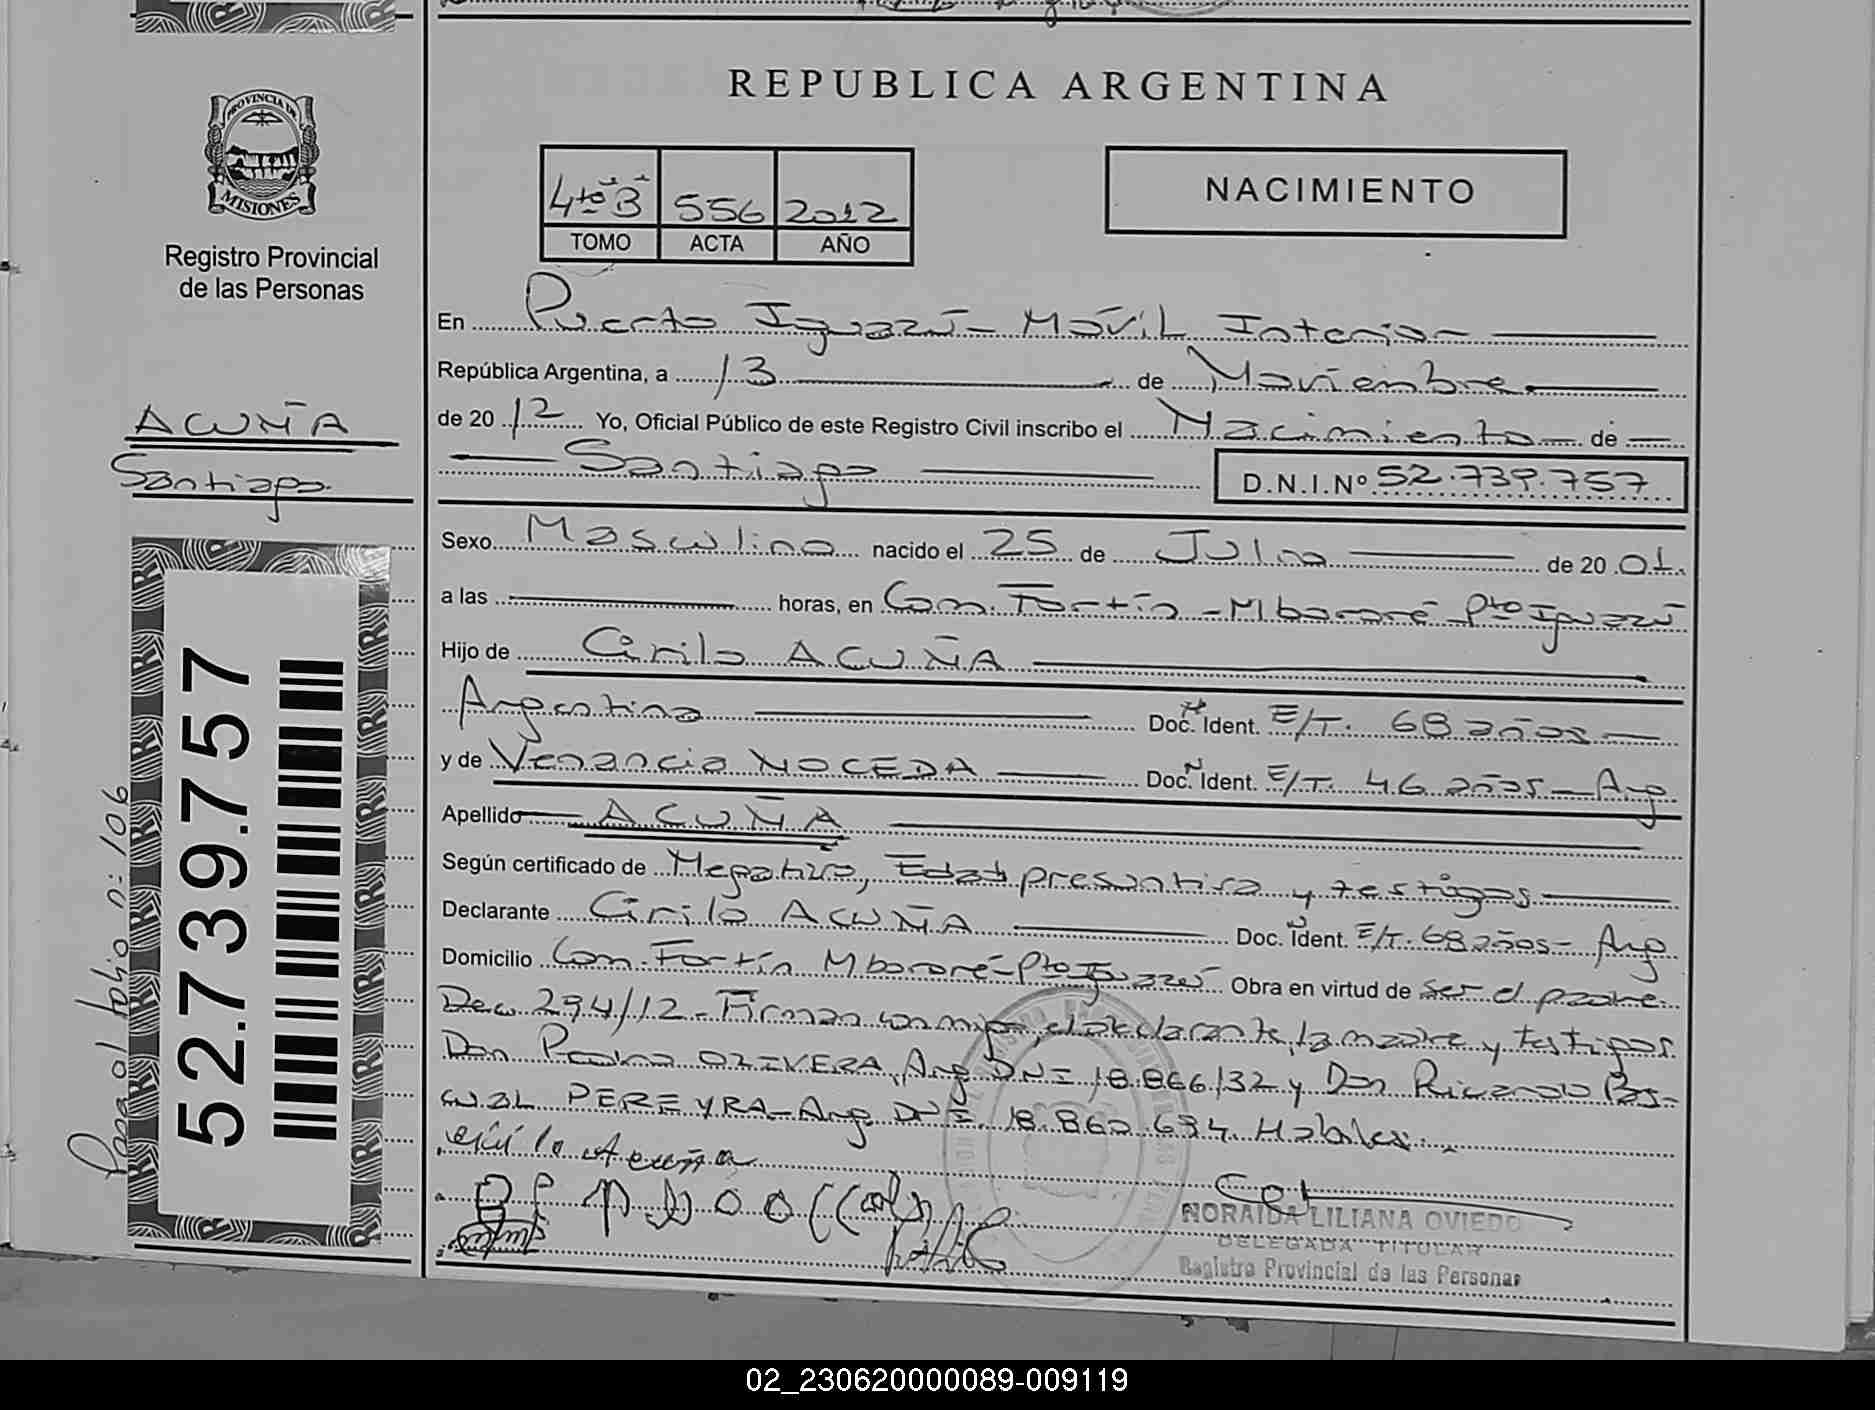 REPUBLICA ARGENTINA
PROVINCIA DE
MISIONES
Registro Provincial
de las Personas
4to B 556 2012
TOMO ACTA AÑO
NACIMIENTO
En Puerto Iguazú - Móvil Interior
República Argentina, a 13 de Noviembre
ACUÑA
Santiago
de 2012 Yo, Oficial Público de este Registro Civil inscribo el Nacimiento de
Santiago D.N.I.Nº 52.739.757
Sexo Masculino nacido el 25 de Julio de 2001.
a las horas, en Com. Fortín - Mbororé - Pto Iguazú
Hijo de Cirilo ACUÑA
Argentina Doc. Ident. E/T. 68 años
y de Venancia NOCEDA Doc. Ident. E/T. 46 años - Arg
Apellido ACUÑA
Según certificado de Negativo, Edad presuntiva y testigos
Declarante Cirilo ACUÑA Doc. Ident. E/T. 68 años - Arg
Domicilio Com. Fortín Mbororé - Pto Iguazú Obra en virtud de ser el padre.
Dec. 294/12 - Firman conmigo, el declarante, la madre y testigos
Don Pedro OLIVERA, Arg. DNI 18.866.132 y Don Ricardo Pas-
cual PEREYRA - Arg. DNI. 18.860.634. Hábiles.
Cirilo Acuña
NORAIDA LILIANA OVIEDO
DELEGADA TITULAR
Registro Provincial de las Personas
52.739.757
Pasa al folio n: 106
02_230620000089-009119